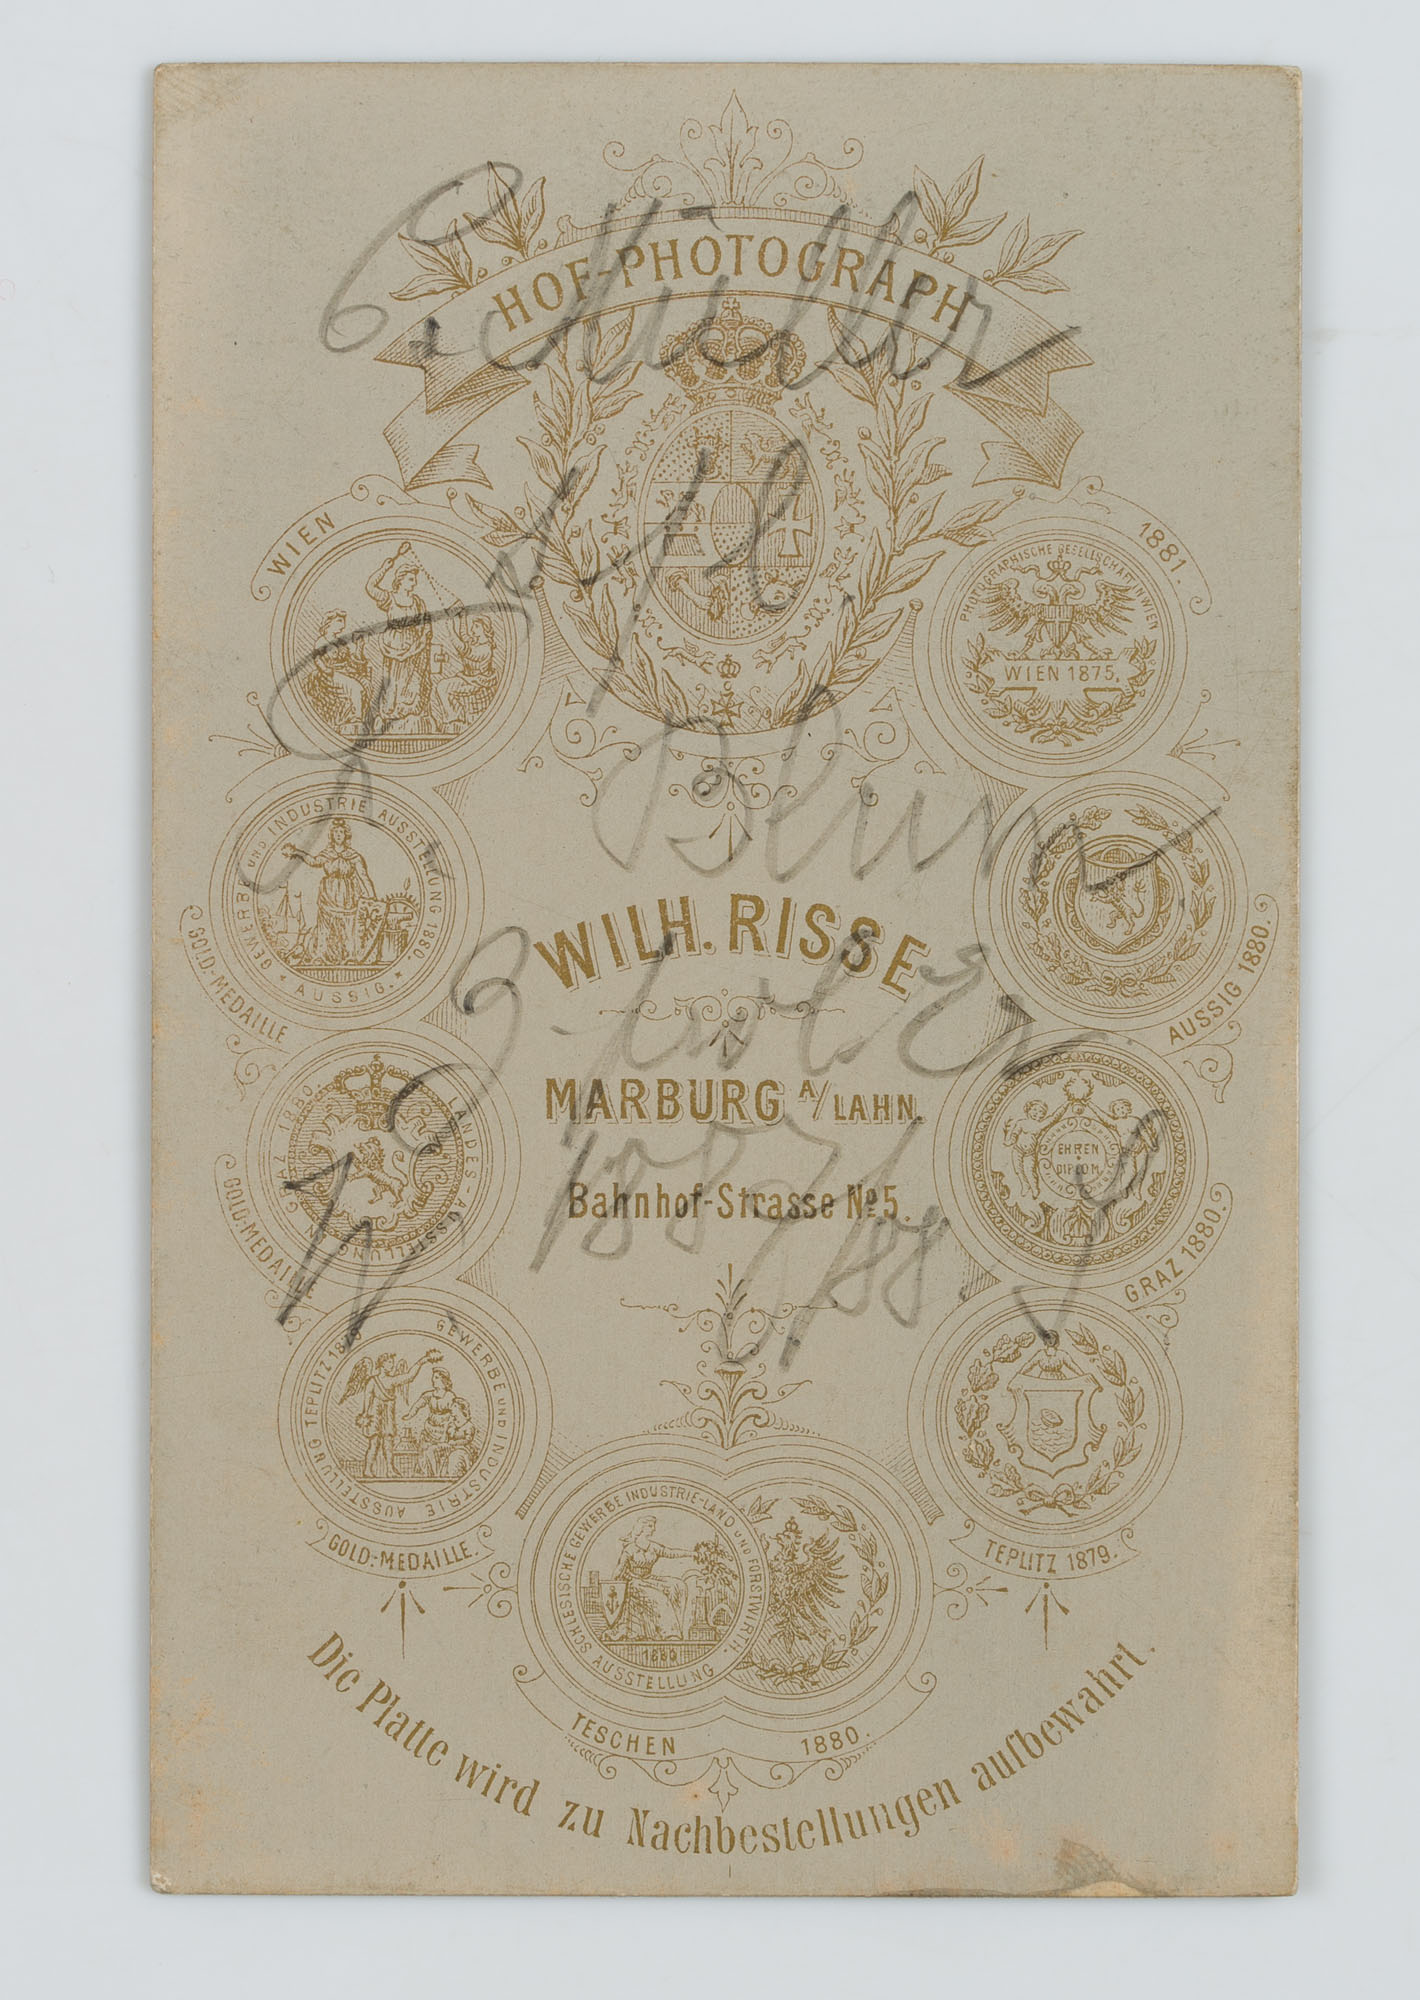 HOF-PHOTOGRAPH
C. Müller
WIEN
1881.
PHOTOGRAPHISCHE GESELLSCHAFT IN WIEN
WIEN 1875.
Blum
GEWERBE UND INDUSTRIE AUSSTELLUNG 1880.
* AUSSIG. *
GOLD-MEDAILLE
AUSSIG 1880.
WILH. RISSE
MARBURG A/LAHN.
Bahnhof-Strasse No 5.
W. S. 1887/88.
LANDES-AUSSTELLUNG GRAZ 1880.
GOLD-MEDAILLE
EHREN
DIPLOM
GRAZ 1880.
GEWERBE UND INDUSTRIE AUSSTELLUNG TEPLITZ 1879
GOLD-MEDAILLE.
TEPLITZ 1879.
SCHLESISCHE GEWERBE INDUSTRIE-LAND UND FORSTWIRTH. AUSSTELLUNG
1880
TESCHEN 1880.
Die Platte wird zu Nachbestellungen aufbewahrt.